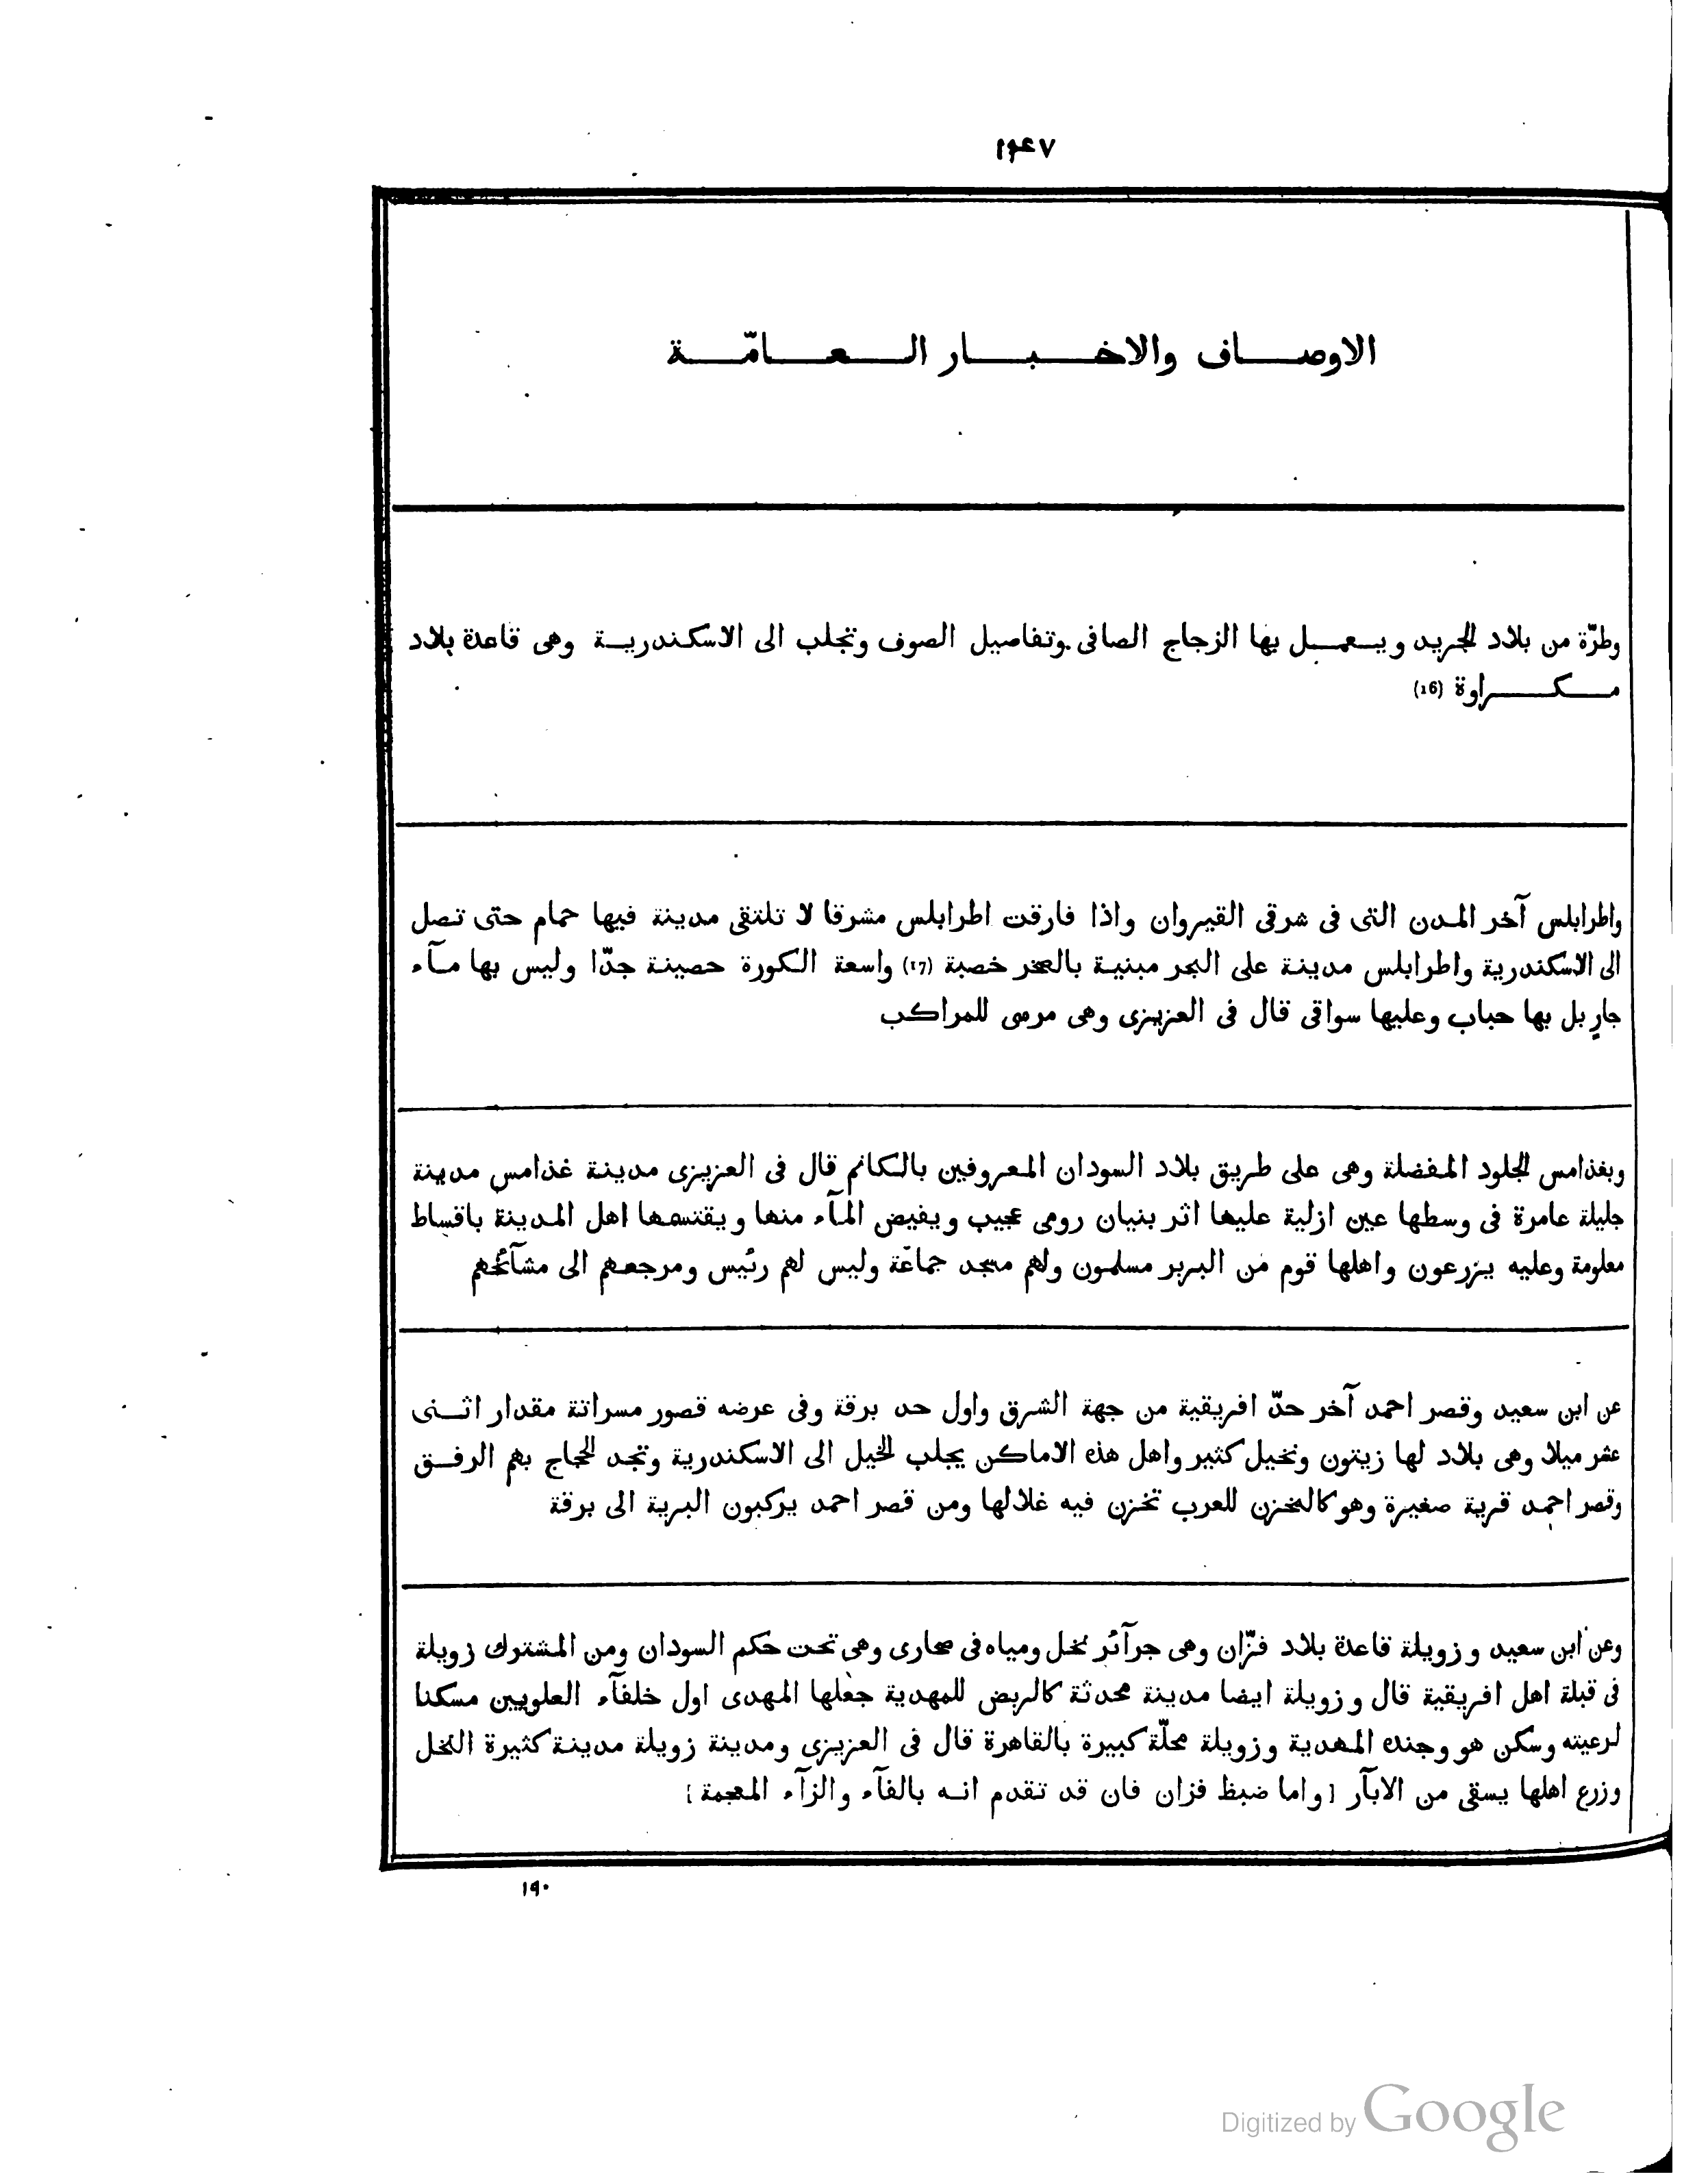 ١٤٧
الاوصاف والاخبار العامّة
وطرّة من بلاد الجريد ويعمل بها الزجاج الصافى وتفاصيل الصوف وتجلب الى الاسكندرية وهى قاعدة بلاد
مكراوة (16)
واطرابلس آخر المدن التى فى شرقى القيروان واذا فارقت اطرابلس مشرقا لا تلتقى مدينة فيها حمام حتى تصل
الى الاسكندرية واطرابلس مدينة على البحر مبنية بالصخر خصبة (17) واسعة الكورة حصينة جدّا وليس بها مآء
جارٍ بل بها حباب وعليها سواقى قال فى العزيزى وهى مرسى للمراكب
وبغذامس الجلود المفضلة وهى على طريق بلاد السودان المعروفين بالكانم قال فى العزيزى مدينة غذامس مدينة
جليلة عامرة فى وسطها عين ازلية عليها اثر بنيان رومى عجيب ويفيض المآء منها ويقتسمها اهل المدينة باقساط
معلومة وعليه يزرعون واهلها قوم من البربر مسلمون ولهم مسجد جماعة وليس لهم رئيس ومرجعهم الى مشآئخهم
عن ابن سعيد وقصر احمد آخر حدّ افريقية من جهة الشرق واول حد برقة وفى عرضه قصور مسراتة مقدار اثنى
عشر ميلا وهى بلاد لها زيتون ونخيل كثير واهل هذه الاماكن يجلب الخيل الى الاسكندرية وتجد الحجاج بهم الرفق
وقصر احمد قرية صغيرة وهو كالمخزن للعرب تخزن فيه غلالها ومن قصر احمد يركبون البرية الى برقة
وعن ابن سعيد وزويلة قاعدة بلاد فزّان وهى جرآئر نخل ومياه فى صحارى وهى تحت حكم السودان ومن المشترك زويلة
فى قبلة اهل افريقية قال وزويلة ايضا مدينة محدثة كالربض للمهدية جعلها المهدى اول خلفآء العلويين مسكنا
لرعيته وسكن هو وجنده المهدية وزويلة محلّة كبيرة بالقاهرة قال فى العزيزى ومدينة زويلة مدينة كثيرة النخل
وزرع اهلها يسقى من الابآر [واما ضبظ فزان فان قد تقدم انه بالفآء والزآء المعجمة]
١٩٠
Digitized by Google